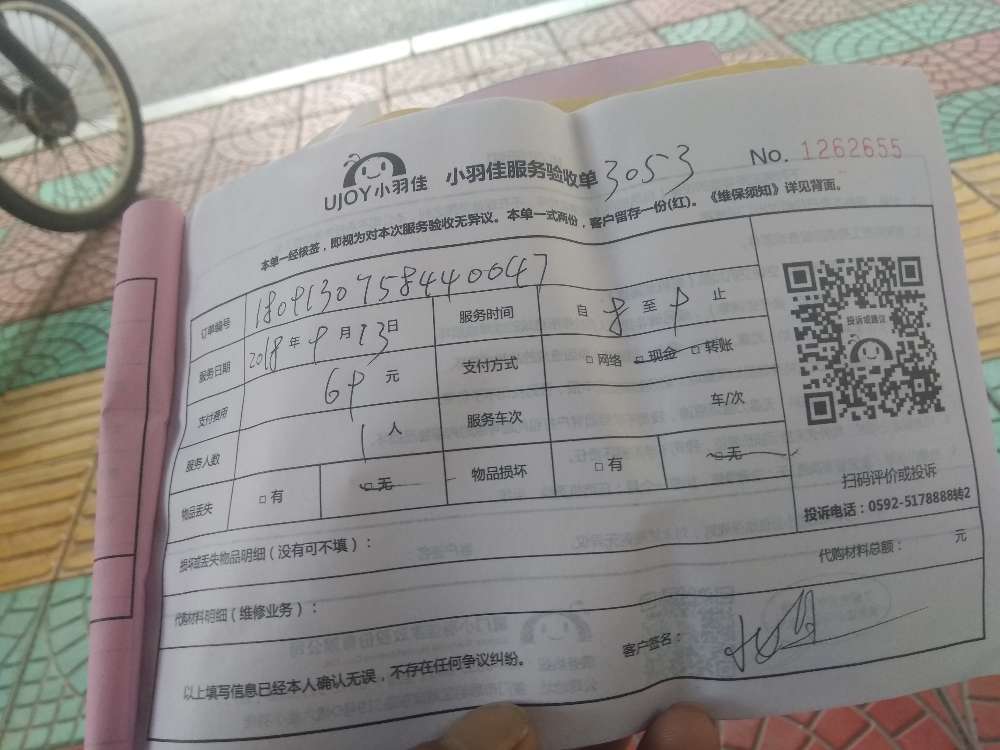 UJOY小羽佳 小羽佳服务验收单 3053 No. 1262655
本单一经核签，即视为对本次服务验收无异议。本单一式两份，客户留存一份(红)。《维保须知》详见背面。
订单编号 1809130758440047
服务日期 2018年9月13日 服务时间 自 8 至 9 止
支付费用 69 元 支付方式 □网络 □现金 □转账
服务人数 1 人 服务车次 车/次
物品丢失 □有 □无 物品损坏 □有 □无
投诉或建议
扫码评价或投诉
投诉电话：0592-5178888转2
损坏或丢失物品明细（没有可不填）：
代购材料明细（维修业务）： 代购材料总额： 元
以上填写信息已经本人确认无误，不存在任何争议纠纷。 客户签名：